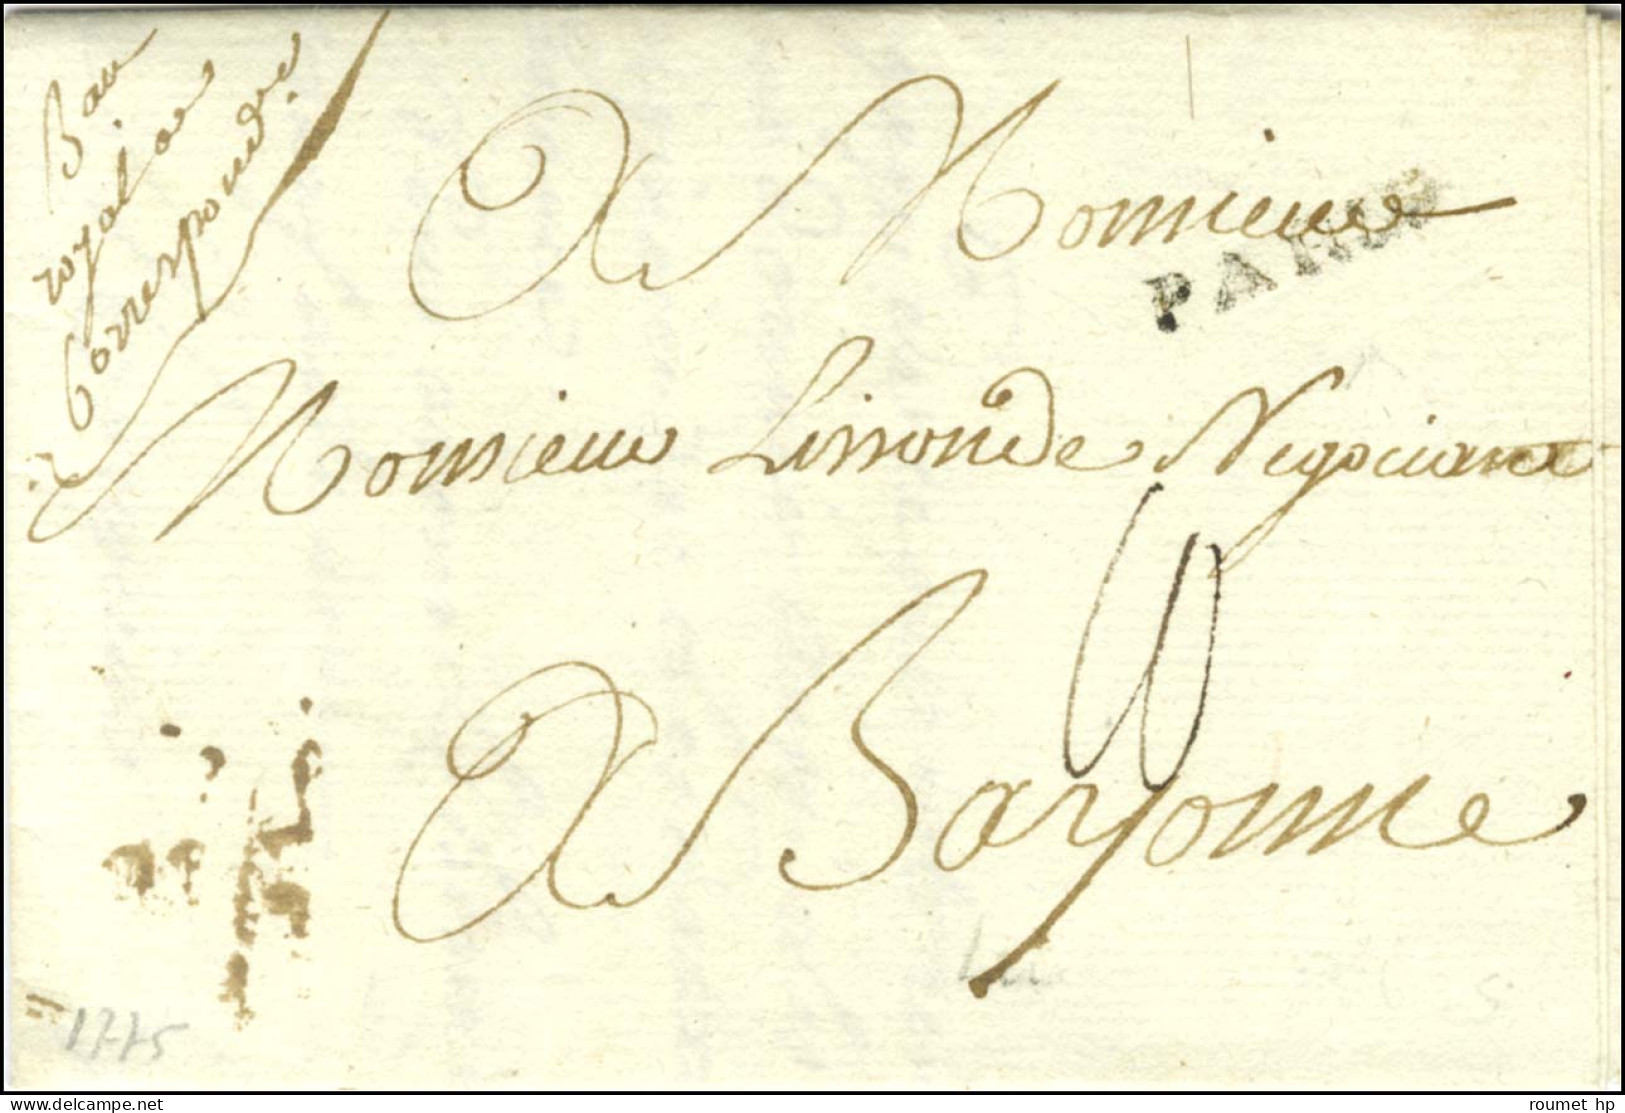 Bau
royal de
Correspondce
A Monsieur
PARIS
Monsieur Lissonde Negociant
A Bayonne
1775
roumet hp